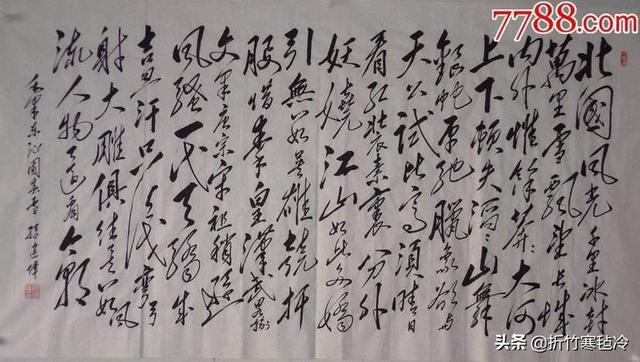 7788.com
北國风光千里冰封
萬里雪飘望长城
内外惟餘莽々大河
上下顿失滔々山舞
銀蛇原驰臘象欲与
天公试比高须晴日
看红装素裹分外
妖娆江山如此多娇
引無数英雄竞折
腰惜秦皇漢武略输
文采唐宗宋祖稍逊
风骚一代天骄成
吉思汗只识弯弓
射大雕俱往矣数风
流人物还看今朝
毛泽东沁園春雪 孫建偉
头条 @折竹寒毡冷